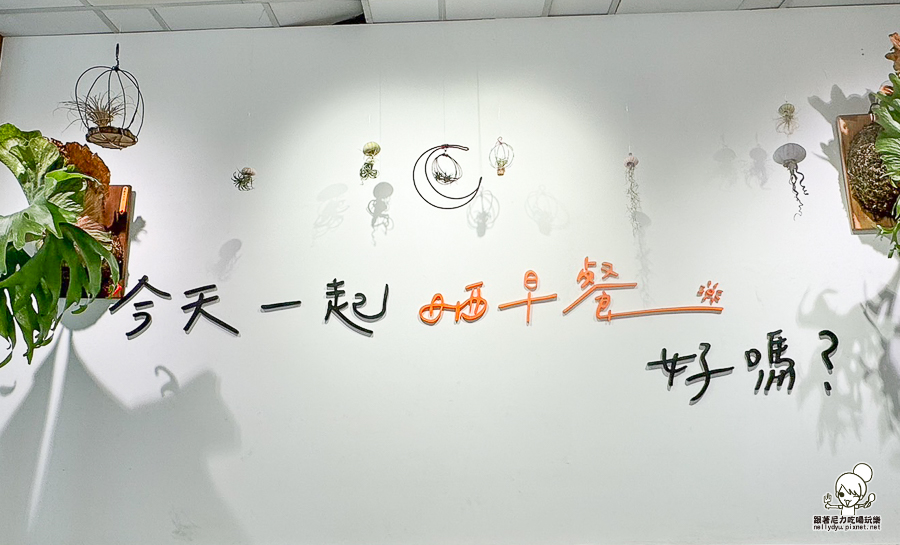 今天一起晒早餐
好嗎?
跟著尼力吃喝玩樂
nellydyu.pixnet.net